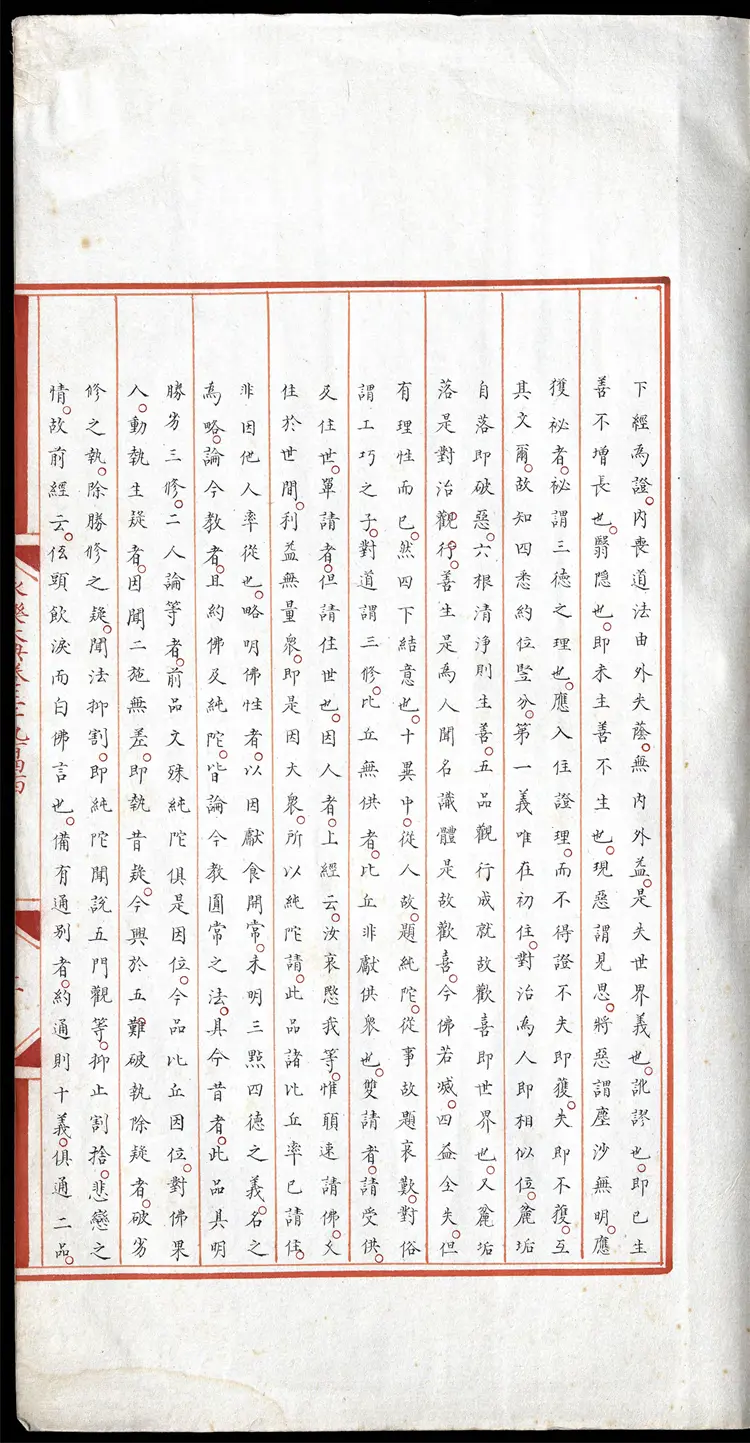 下經為證。內喪道法由外失蔭。無內外益。是失世界義也。訛謬也。即已生
善不增長也。翳隱也。即未生善不生也。現惡謂見思。將惡謂塵沙無明。應
獲祕者。祕謂三德之理也。應入住證理。而不得證不失即獲。失即不獲。互
其文爾。故知四悉約位豎分。第一義唯在初住。對治為人即相似位。麤垢
自落即破惡。六根清淨則生善。五品觀行成就故歡喜即世界也。又麤垢
落是對治觀行。善生是為人聞名識體是故歡喜。今佛若滅。四益全失。但
有理性而已。然四下結意也。十異中。從人故。題純陀。從事故題哀歎。對俗
謂工巧之子。對道謂三修。比丘無供者。比丘非獻供眾也。雙請者。請受供。
及住世。單請者。但請住世也。因人者。上經云。汝哀愍我等。惟願速請佛。久
住於世間。利益無量眾。即是因大眾。所以純陀請。此品諸比丘率已請住。
非因他人率從也。略明佛性者。以因獻食開常。未明三點四德之義。名之
為略。論今教者。且約佛及純陀。皆論今教圓常之法。具今昔者。此品具明
勝劣三修。二人論等者。前品文殊純陀俱是因位。今品比丘因位。對佛果
人。動執生疑者。因聞二施無差。即執昔疑。今興於五難破執除疑者。破劣
修之執。除勝修之疑。聞法抑割。即純陀聞說五門觀等。抑止割捨。悲戀之
情。故前經云。低頭飲淚而白佛言也。備有通別者。約通則十義。俱通二品。
永樂大典卷三千九百四